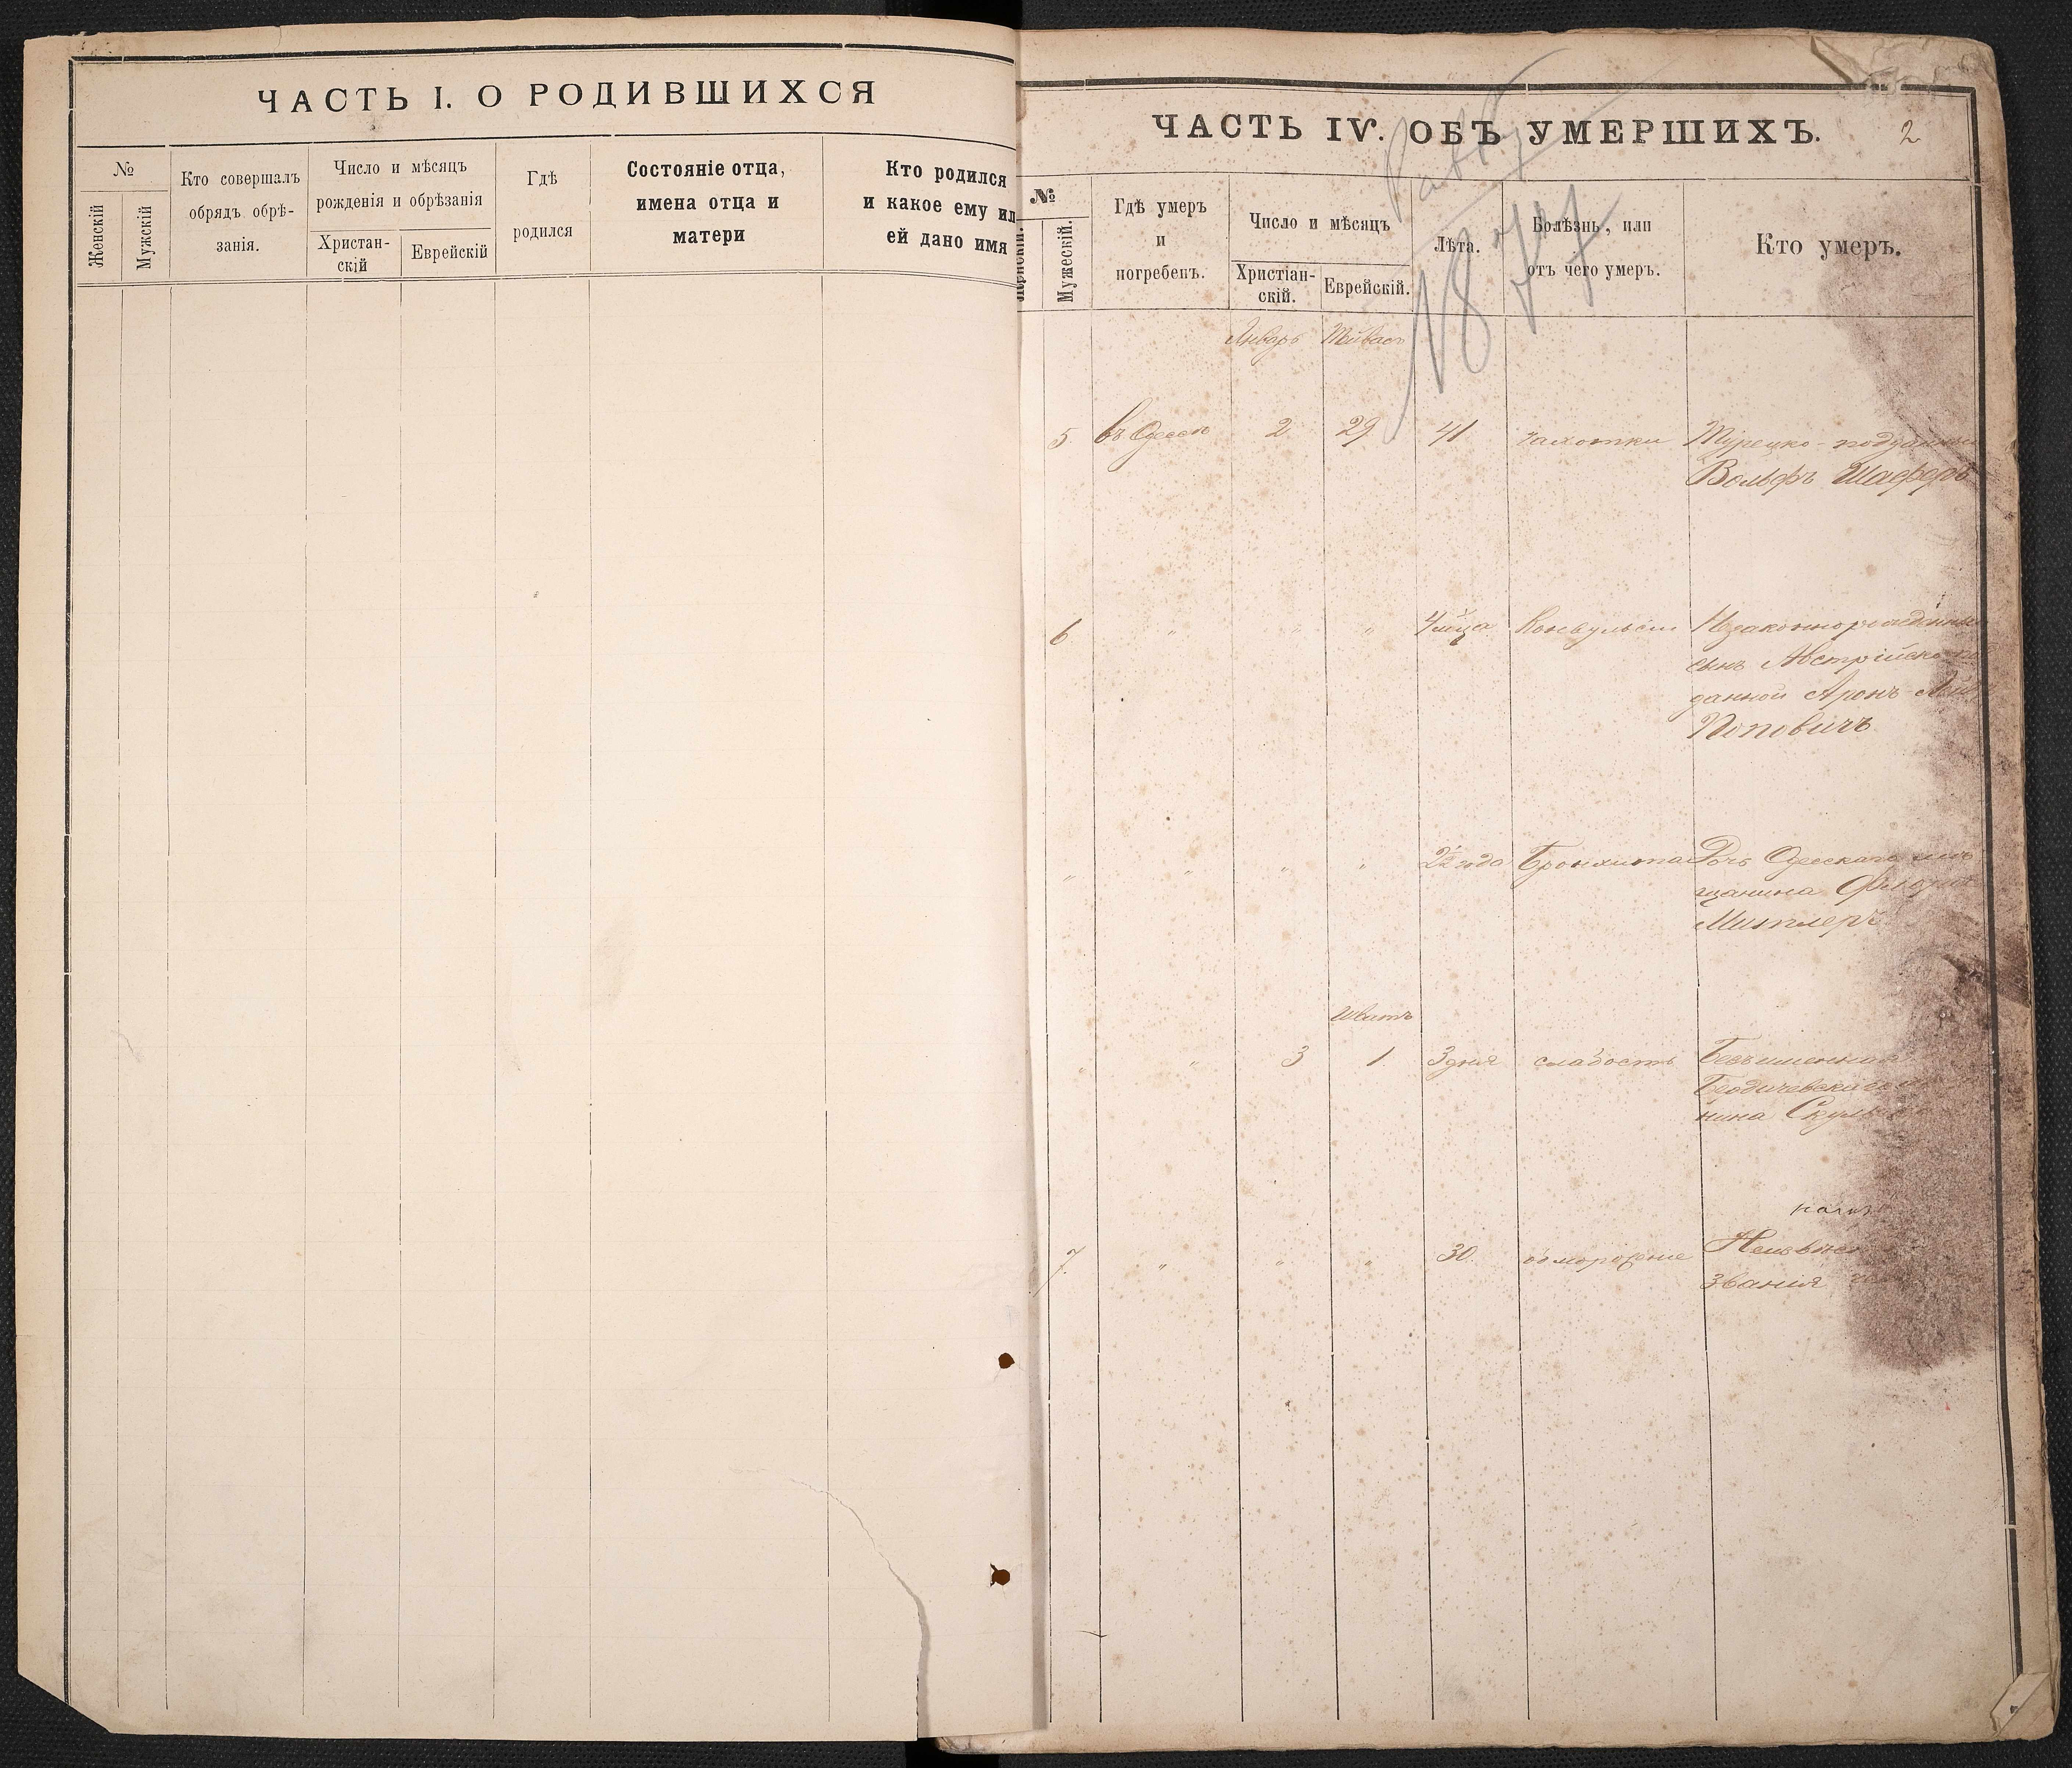 ЧАСТЬ I. О РОДИВШИХСЯ
№
Женскій
Мужскій
Кто совершалъ
обрядъ обрѣ-
занія.
Число и мѣсяцъ
рожденія и обрѣзанія
Христан-
скій
Еврейскій
Гдѣ
родился
Состояніе отца,
имена отца и
матери
Кто родился
и какое ему ил
ей дано имя
ЧАСТЬ IV. ОБЪ УМЕРШИХЪ.
2
1877
№
Мужескій.
Гдѣ умеръ
и
погребенъ.
Число и мѣсяцъ
Христіан-
скій.
Еврейскій.
Лѣта.
Болѣзнь, или
отъ чего умеръ.
Кто умеръ.
Январь
5 въ Одессѣ 2 29 41 чахотки Турецко-подданный
Вольфъ Шафферъ
6 " " " 4 м-ца Конвульсіи Незаконнорожденный
сынъ Австрійско-под
данной Аронъ
Поповичъ
" " " " 2½ года Бронхита Дочь Одесскаго мѣ
щанина
Митлеръ
Шватъ
" " 3 1 3 дня слабость Безъименная
Бердичевскаго
нина
7 " " " 30
званія